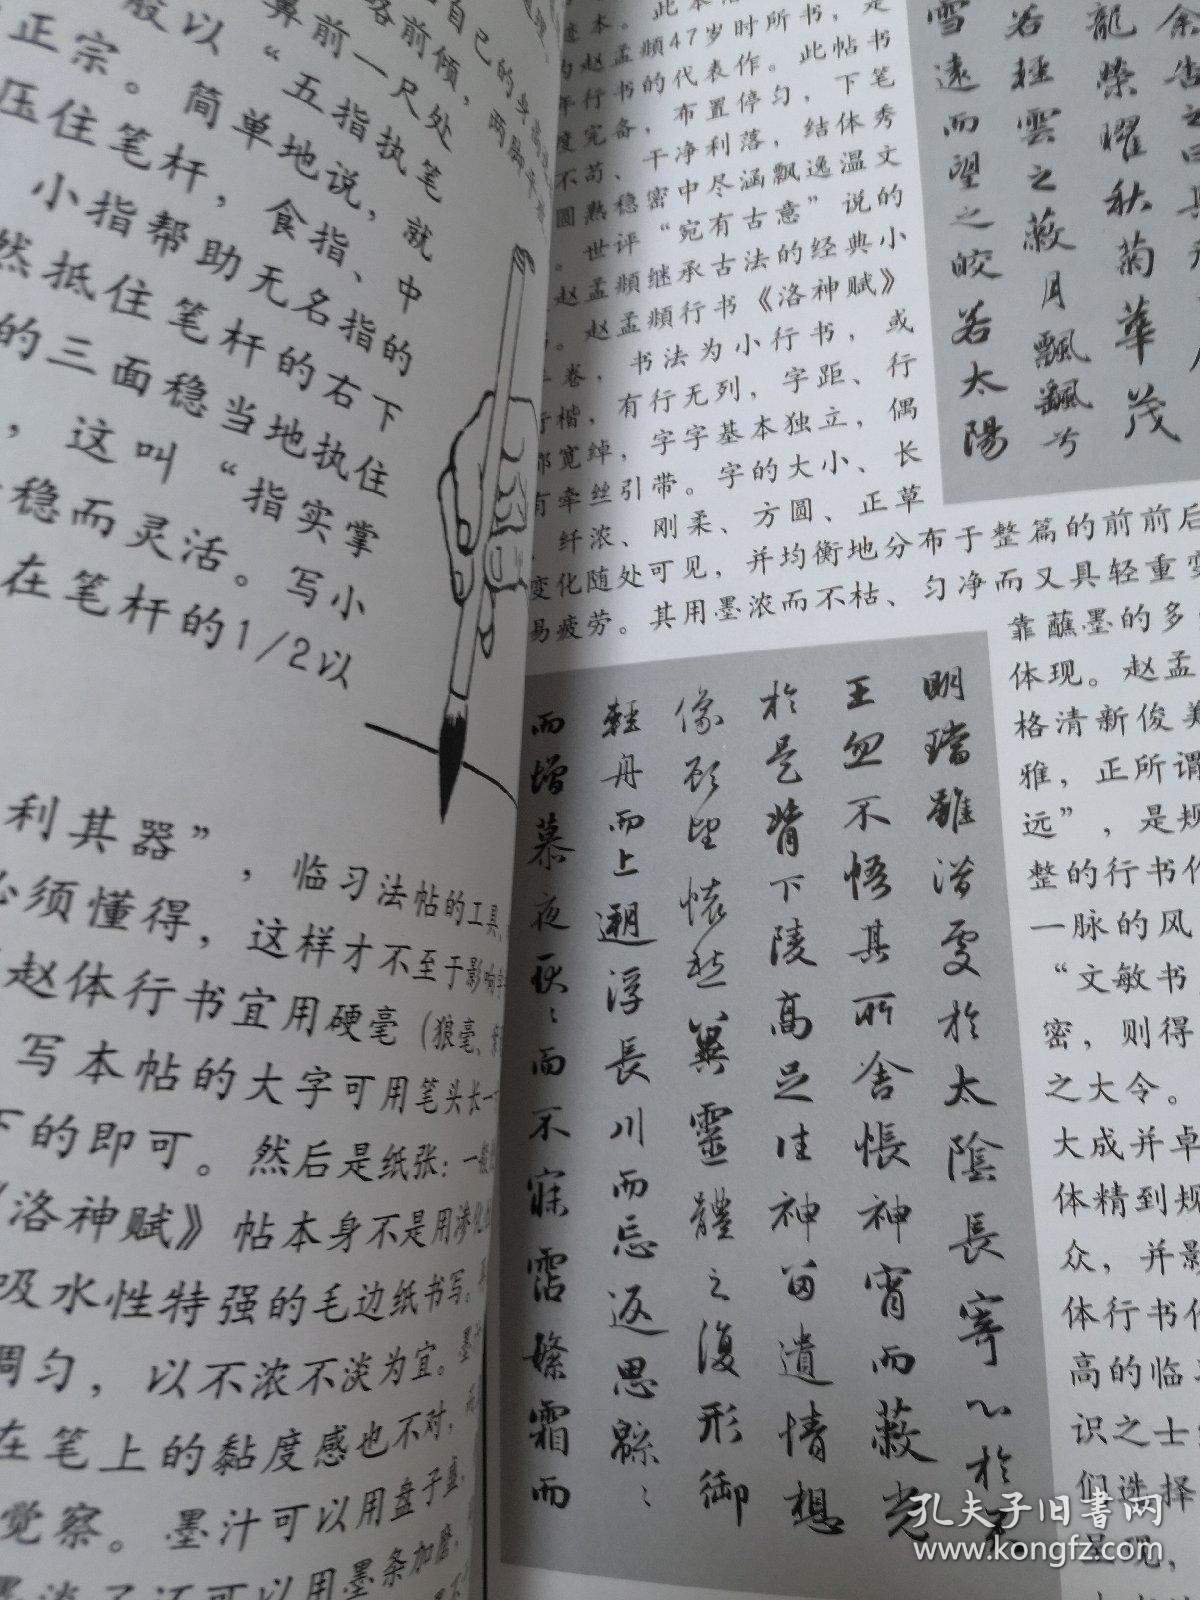 般以“五指执笔
正宗。简单地说，就
压住笔杆，食指、中
小指帮助无名指的
然抵住笔杆的右下
的三面稳当地执住
，这叫“指实掌
稳而灵活。写小
在笔杆的1/2以
利其器”，临习法帖的工具
必须懂得，这样才不至于影响
赵体行书宜用硬毫（狼毫、
写本帖的大字可用笔头长一
下的即可。然后是纸张：一般
《洛神赋》帖本身不是用渗化
吸水性特强的毛边纸书写。
调匀，以不浓不淡为宜。墨
在笔上的黏度感也不对，
觉察。墨汁可以用盘子盛，
还可以用墨条加磨，
赵孟頫47岁时所书，是
行书的代表作。此帖书
度完备，布置停匀，下笔
不苟、干净利落，结体秀
圆熟稳密中尽涵飘逸温文
。世评“宛有古意”说的
赵孟頫继承古法的经典小
。赵孟頫行书《洛神赋》
卷，书法为小行书，或
行楷，有行无列，字距、行
都宽绰，字字基本独立，偶
有牵丝引带。字的大小、长
、纤浓、刚柔、方圆、正草
变化随处可见，并均衡地分布于整篇的前前后
易疲劳。其用墨浓而不枯、匀净而又具轻重
靠蘸墨的多
体现。赵孟
格清新俊美
雅，正所谓
远”，是规
整的行书作
一脉的风
“文敏书
密，则得
之大令。
大成并卓
体精到规
众，并影
体行书作
高的临
识之士
们选择
呈现，
龍榮曜秋菊華茂
若輕雲之蔽月飄飄兮
雪遠而望之皎若太陽
明璫雖潛處於太陰長寄心於
王忽不悟其所舍悵神宵而蔽光
於是背下陵高足往神留遺情想
像顧望懷愁冀靈體之復形御
輕舟而上遡浮長川而忘返思緜〻
而增慕夜耿〻而不寐霑繁霜而
孔夫子旧书网
www.kongfz.com